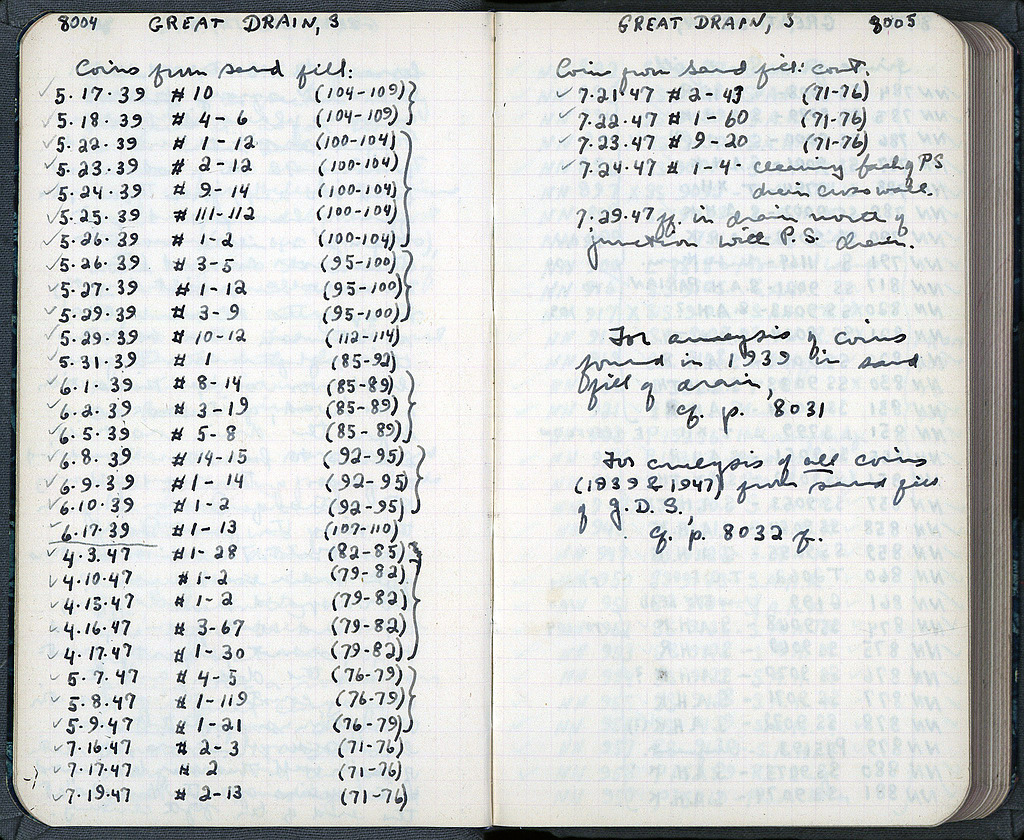 8004 GREAT DRAIN, S
Coins from sand fill:
✓ 5.17.39 #10 (104-109)
✓ 5.18.39 #4-6 (104-109)
✓ 5.22.39 #1-12 (100-104)
✓ 5.23.39 #2-12 (100-104)
✓ 5.24.39 #9-14 (100-104)
✓ 5.25.39 #111-112 (100-104)
✓ 5.26.39 #1-2 (100-104)
✓ 5.26.39 #3-5 (95-100)
✓ 5.27.39 #1-12 (95-100)
✓ 5.29.39 #3-9 (95-100)
5.29.39 #10-12 (112-114)
✓ 5.31.39 #1 (85-92)
✓ 6.1.39 #8-14 (85-89)
✓ 6.2.39 #3-19 (85-89)
✓ 6.5.39 #5-8 (85-89)
✓ 6.8.39 #14-15 (92-95)
✓ 6.9.39 #1-14 (92-95)
✓ 6.10.39 #1-2 (92-95)
6.17.39 #1-13 (107-110)
✓ 4.3.47 #1-28 (82-85)
✓ 4.10.47 #1-2 (79-82)
✓ 4.15.47 #1-2 (79-82)
✓ 4.16.47 #3-67 (79-82)
✓ 4.17.47 #1-30 (79-82)
✓ 5.7.47 #4-5 (76-79)
✓ 5.8.47 #1-119 (76-79)
✓ 5.9.47 #1-21 (76-79)
✓ 7.16.47 #2-3 (71-76)
✓ 7.17.47 #2 (71-76)
✓ 7.19.47 #2-13 (71-76)
GREAT DRAIN, S 8005
Coins from sand fill: cont.
✓ 7.21.47 #2-43 (71-76)
✓ 7.22.47 #1-60 (71-76)
✓ 7.23.47 #9-20 (71-76)
7.24.47 #1-4 cleaning face of PS
drain cross wall.
7.29.47 ff. in drain north of
junction with P.S. drain.
For analysis of coins
found in 1939 in sand
fill of drain,
cf. p. 8031
For analysis of all coins
(1939 & 1947) from sand fill
of G.D.S.,
cf. p. 8032 f.